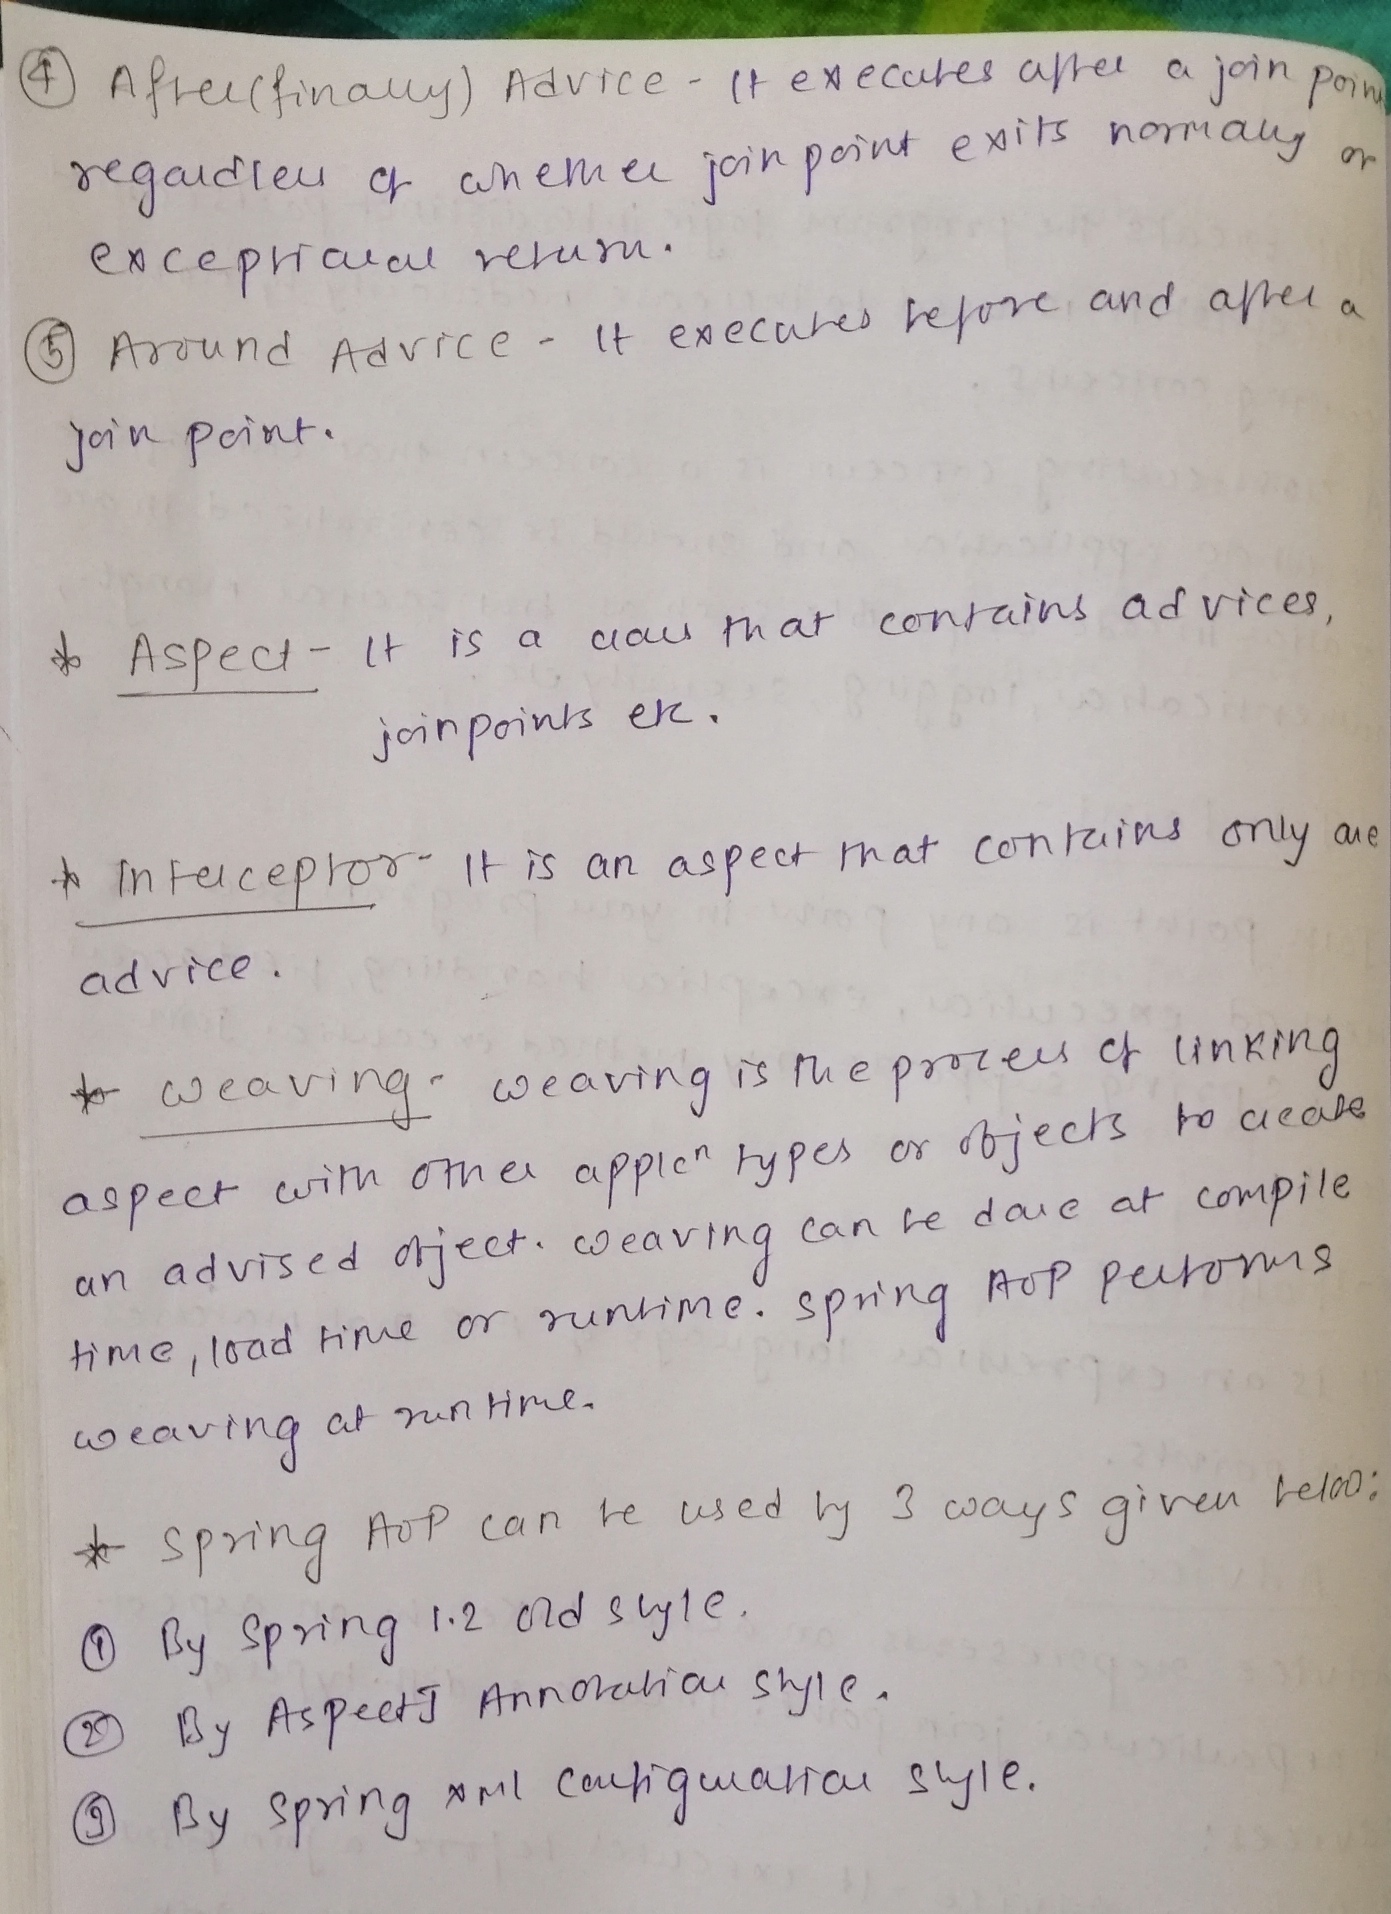 ④ After(finally) Advice - It executes after a join point
regardless of whether join point exits normally or
exceptional return.
⑤ Around Advice - It executes before and after a
join point.
* Aspect - It is a class that contains advices,
joinpoints etc.
* Interceptor - It is an aspect that contains only one
advice.
* Weaving - weaving is the process of linking
aspect with other applcn types or objects to create
an advised object. Weaving can be done at compile
time, load time or runtime. Spring AOP performs
weaving at run time.
* Spring AOP can be used by 3 ways given below:
① By Spring 1.2 old style.
② By AspectJ Annotation style.
③ By Spring xml configuration style.